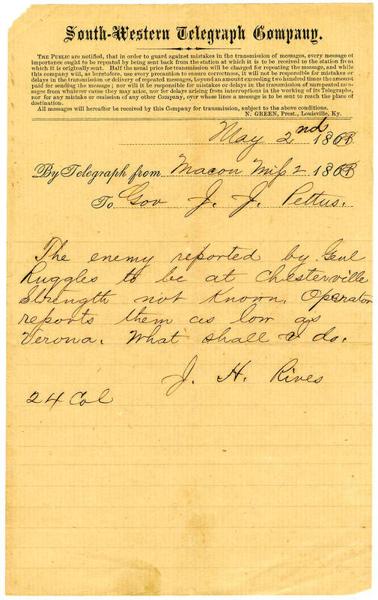 South-Western Telegraph Company.
THE PUBLIC are notified, that in order to guard against mistakes in the transmission of messages, every message of
importance ought to be repeated by being sent back from the station at which it is to be received to the station from
which it is originally sent. Half the usual price for transmission will be charged for repeating the message, and while
this company will, as heretofore, use every precaution to ensure correctness, it will not be responsible for mistakes or
delays in the transmission or delivery of repeated messages, beyond an amount exceeding two hundred times the amount
paid for sending the message; nor will it be responsible for mistakes or delays in the transmission of unrepeated mes-
sages from whatever cause they may arise, nor for delays arising from interruptions in the working of its Telegraphs,
nor for any mistake or omission of any other Company, over whose lines a message is to be sent to reach the place of
destination.
All messages will hereafter be received by this Company for transmission, subject to the above conditions.
N. GREEN, Prest., Louisville, Ky.
May 2nd 1863
By Telegraph from Macon Miss 2 1863
To Gov J. J. Pettus.
The enemy reported by Genl
Ruggles to be at Chesterville
Strength not Known. Operator
reports them as low as
Verona. What shall I do.
J. H. Rives
24 Col